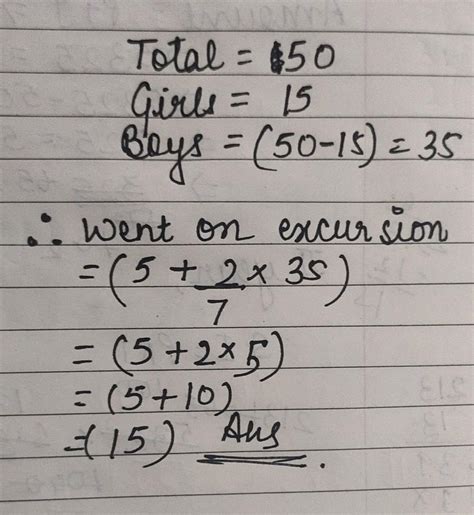 Total = 50
Girls = 15
Boys = (50-15) = 35
∴ Went on excursion
= (5 + 2/7 × 35)
= (5 + 2×5)
= (5+10)
= (15) Ans.